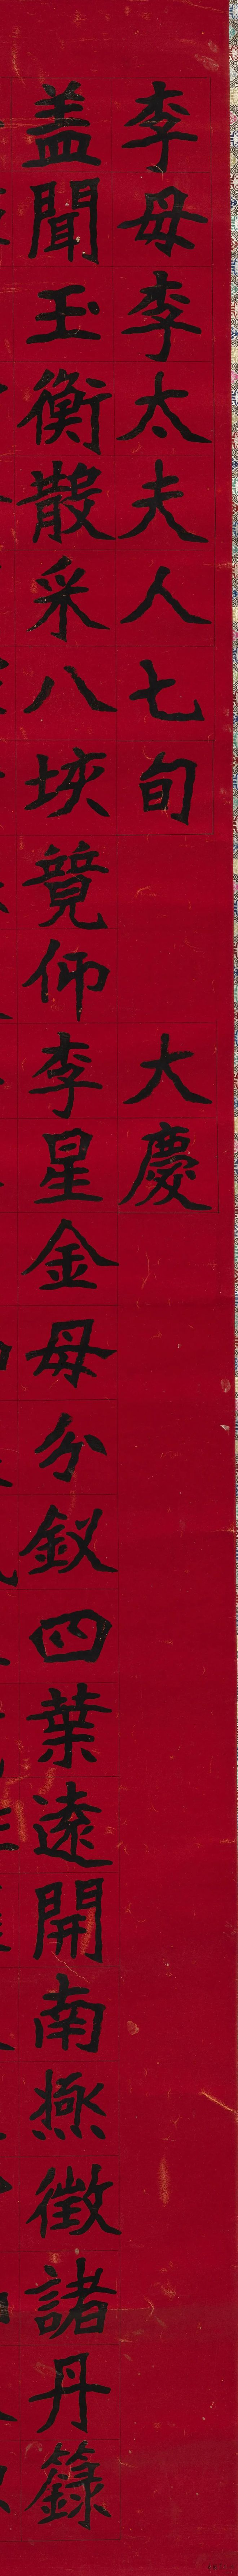 李母李太夫人七旬 大慶
盖聞玉衡散采八埉競仰李星金母分釵四葉遠開南極徵諸丹籙